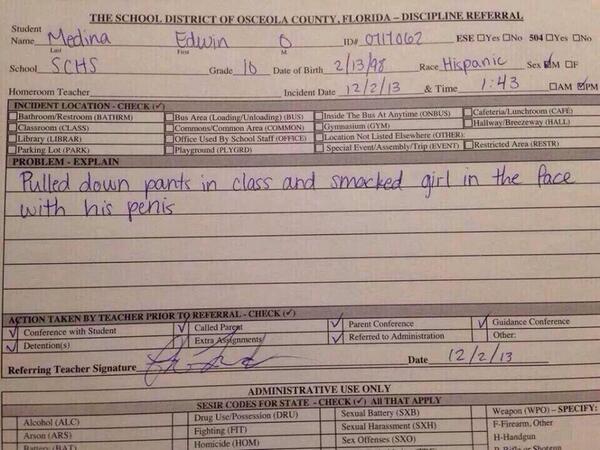 THE SCHOOL DISTRICT OF OSCEOLA COUNTY, FLORIDA – DISCIPLINE REFERRAL
Student
Name Medina Edwin O ID# 0717062 ESE ☐Yes ☐No 504 ☐Yes ☐No
Last First M.
School SCHS Grade 10 Date of Birth 2/13/98 Race Hispanic Sex ☑M ☐F
Homeroom Teacher Incident Date 12/2/13 & Time 1:43 ☐AM ☑PM
INCIDENT LOCATION - CHECK (✓)
Bathroom/Restroom (BATHRM) Bus Area (Loading/Unloading) (BUS) Inside The Bus At Anytime (ONBUS) Cafeteria/Lunchroom (CAFÉ)
Classroom (CLASS) Commons/Common Area (COMMON) Gymnasium (GYM) Hallway/Breezeway (HALL)
Library (LIBRAR) Office Used By School Staff (OFFICE) Location Not Listed Elsewhere (OTHER):
Parking Lot (PARK) Playground (PLYGRD) Special Event/Assembly/Trip (EVENT) Restricted Area (RESTR)
PROBLEM - EXPLAIN
Pulled down pants in class and smacked girl in the face
with his penis
ACTION TAKEN BY TEACHER PRIOR TO REFERRAL - CHECK (✓)
✓ Conference with Student ✓ Called Parent ✓ Parent Conference ✓ Guidance Conference
✓ Detention(s) Extra Assignments ✓ Referred to Administration Other:
Referring Teacher Signature Date 12/2/13
ADMINISTRATIVE USE ONLY
SESIR CODES FOR STATE - CHECK (✓) All THAT APPLY
Alcohol (ALC) Drug Use/Possession (DRU) Sexual Battery (SXB) Weapon (WPO) – SPECIFY:
Arson (ARS) Fighting (FIT) Sexual Harassment (SXH) F-Firearm, Other
Battery (BAT) Homicide (HOM) Sex Offenses (SXO) H-Handgun